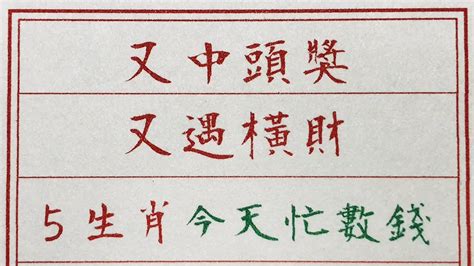 又中頭獎
又遇橫財
5生肖今天忙數錢